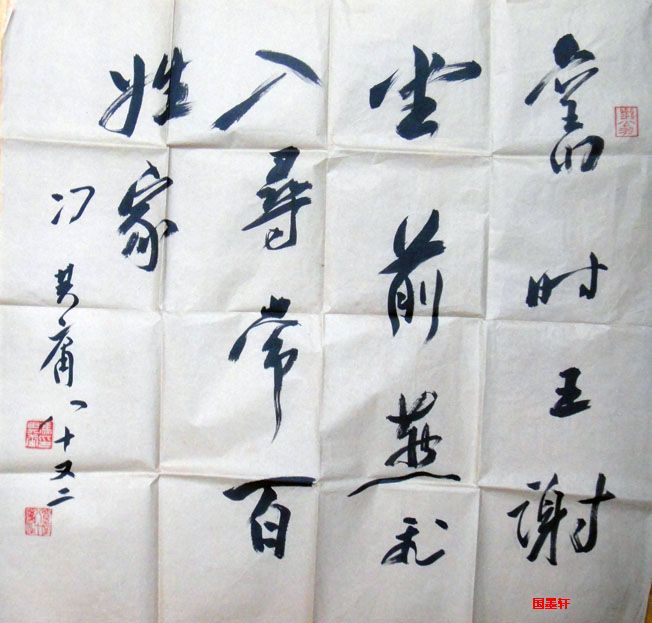 舊时王谢
堂前燕飞
入尋常百
姓家
冯其庸八十又二
国墨轩